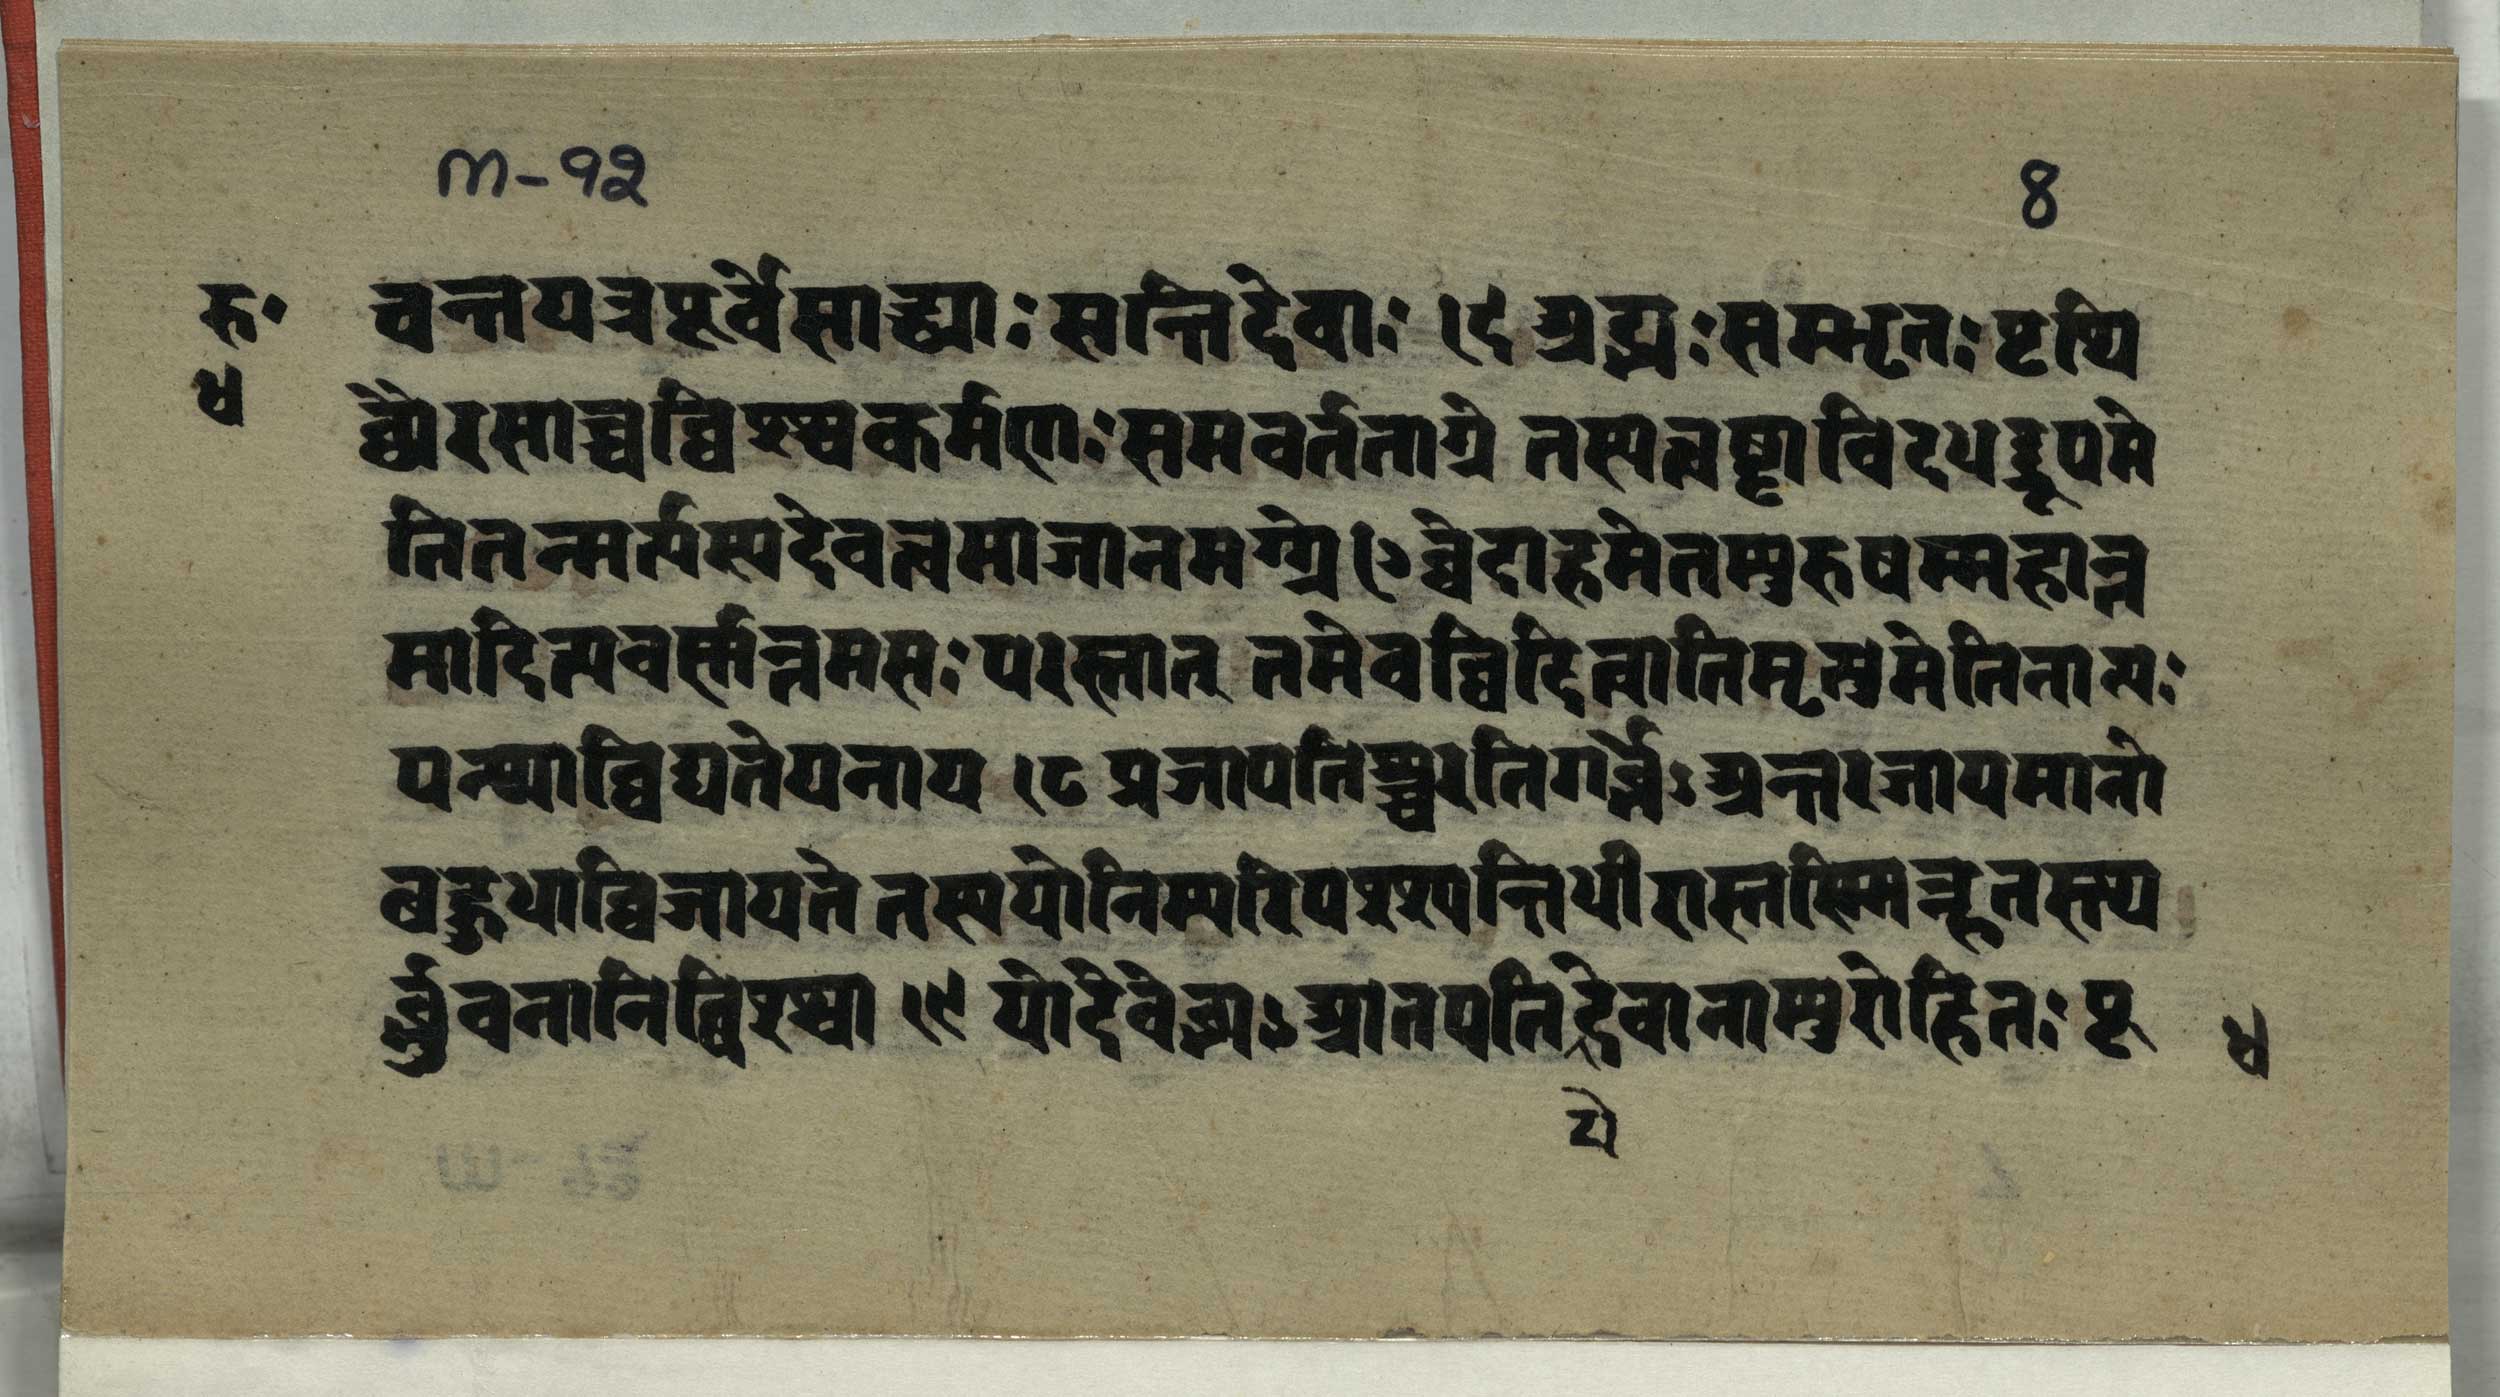 m-१२
४
रु॰
४
चन्तयत्रपूर्वेसाद्ध्याःसन्तिदेवाः १६ अद्भ्यःसम्भृतःपृथि
व्यैरसाच्चव्विश्श्वकर्मणःसमवर्तताग्रे तस्यत्वष्टाविदधद्रूपमे
तितन्मर्त्यस्यदेवत्वमाजानमग्ग्रे १७ व्वेदाहमेतम्पुरुषम्महान्त
मादित्यवर्स्मन्तमसःपरस्तात् तमेवव्विदित्वातिमृत्युमेतिनान्यः
पन्थाव्विद्यतेयनाय १८ प्रजापतिश्च्चरतिगर्ब्भेऽअन्तरजायमानो
बहुधाव्विजायते तस्ययोनिम्परिपश्श्यन्तिधीरास्तस्मिन्हतस्त्थ
र्ब्भुवनानिव्विश्श्वा १९ योदेवेब्भ्यऽआतपतिद्देवानाम्पुरोहितःपू
४
ये